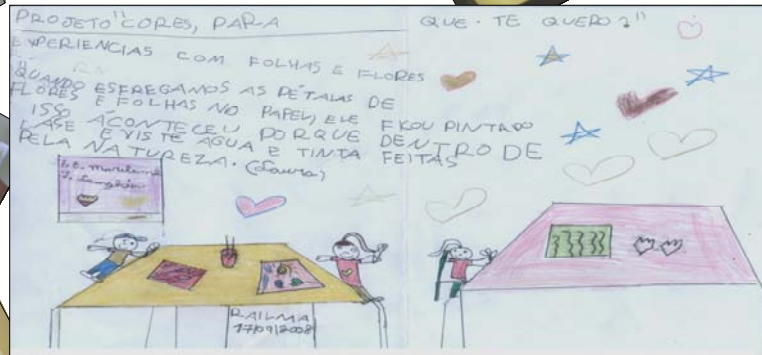 PROJETO "CORES, PARA QUE TE QUERO?"
EXPERIENCIAS COM FOLHAS E FLORES
"QUANDO ESFREGAMOS AS PÉTALAS DE
FLORES E FOLHAS NO PAPEL, ELE FICOU PINTADO
ISSO ACONTECEU PORQUE DENTRO DE
EXISTE AGUA E TINTA FEITAS
PELA NATUREZA. (Laura)
RAILMA
17/09/2008